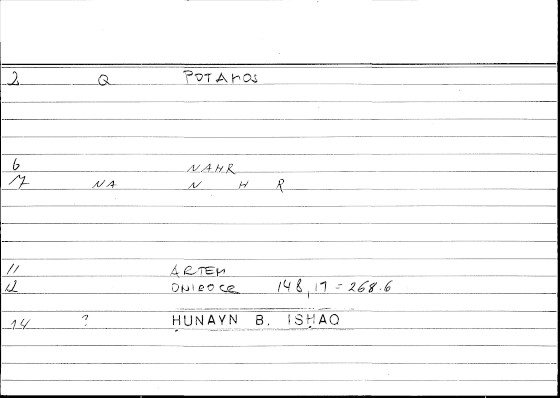 2 Q POTAMOS
6 NAHR
7 NA N H R
11 ARTEM
12 ONIROCR 148,17 = 268.6
14 ? HUNAYN B. ISHAQ